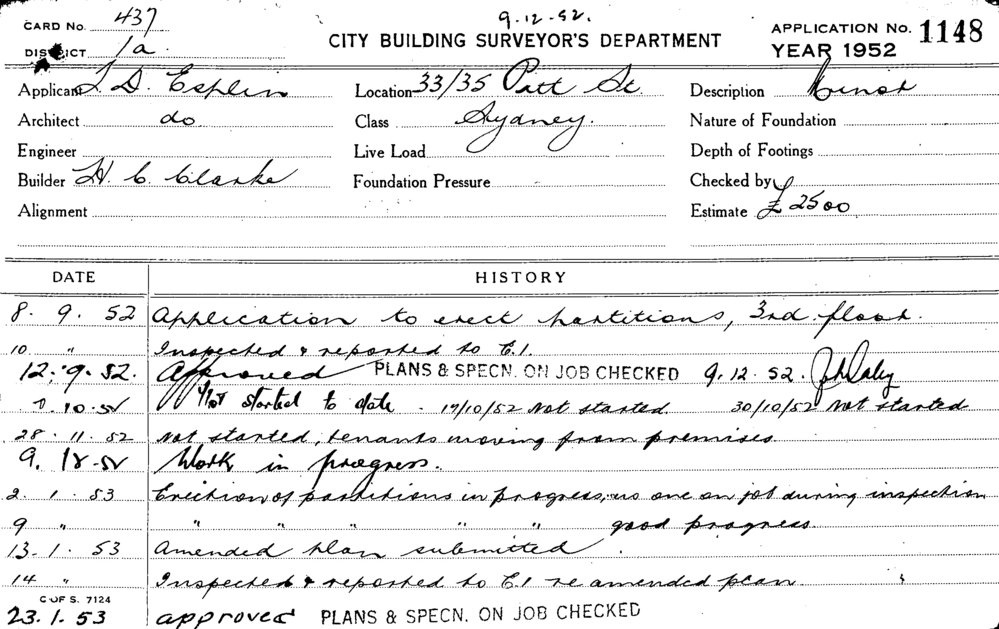 CARD No. 437
9.12.52.
CITY BUILDING SURVEYOR'S DEPARTMENT
APPLICATION No. 1148
DISTRICT 1a
YEAR 1952
Applicant D. Esplin Location 33/35 Pitt St Description
Architect do Class Sydney. Nature of Foundation
Engineer Live Load Depth of Footings
Builder H. C. Clarke Foundation Pressure Checked by
Alignment Estimate £2500
DATE HISTORY
8. 9. 52 Application to erect partitions, 3rd. floor.
10 " Inspected & reported to C.I.
12. 9. 52. Approved PLANS & SPECN. ON JOB CHECKED 9.12.52.
.10.52 Not started to date. 17/10/52 Not started. 30/10/52 Not started
28. 11. 52 Not started, tenants moving from premises.
9. 12.52 Work in progress.
2. 1. 53 Erection of partitions in progress, no one on job during inspection
9 " " " " " " good progress.
13. 1. 53 Amended plan submitted.
14 " Inspected & reported to C.I re amended plan.
C OF S. 7124
23.1.53 approved PLANS & SPECN. ON JOB CHECKED